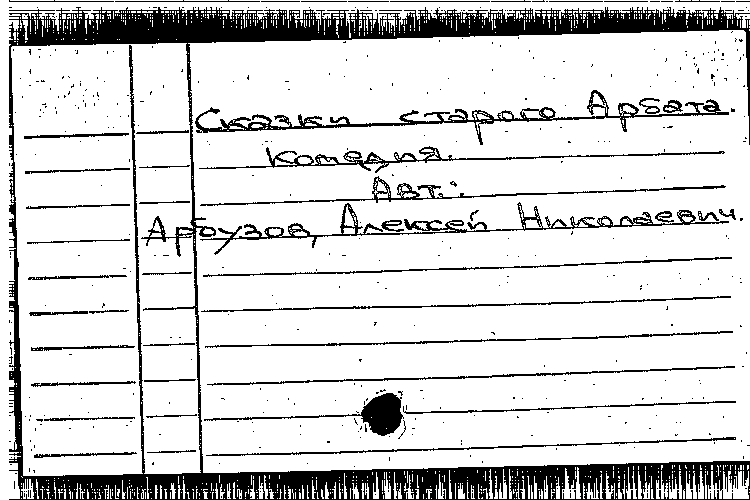 Сказки старого Арбата.
Комедия.
Авт.:
Арбузов, Алексей Николаевич.